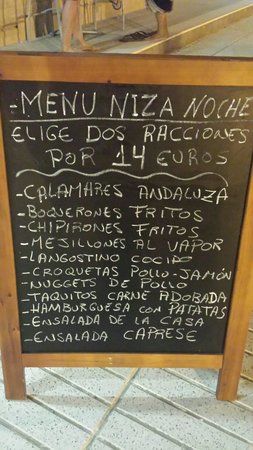 -MENU NIZA NOCHE
ELIGE DOS RACCIONES
POR 14 EUROS
-CALAMARES ANDALUZA
-BOQUERONES FRITOS
-CHIPIRONES FRITOS
-MEJILLONES AL VAPOR
-LANGOSTINO COCIDO
-CROQUETAS POLLO-JAMÓN
-NUGGETS DE POLLO
-TAQUITOS CARNE ADOBADA
-HAMBURGUESA CON PATATAS
-ENSALADA DE LA CASA
-ENSALADA CAPRESE